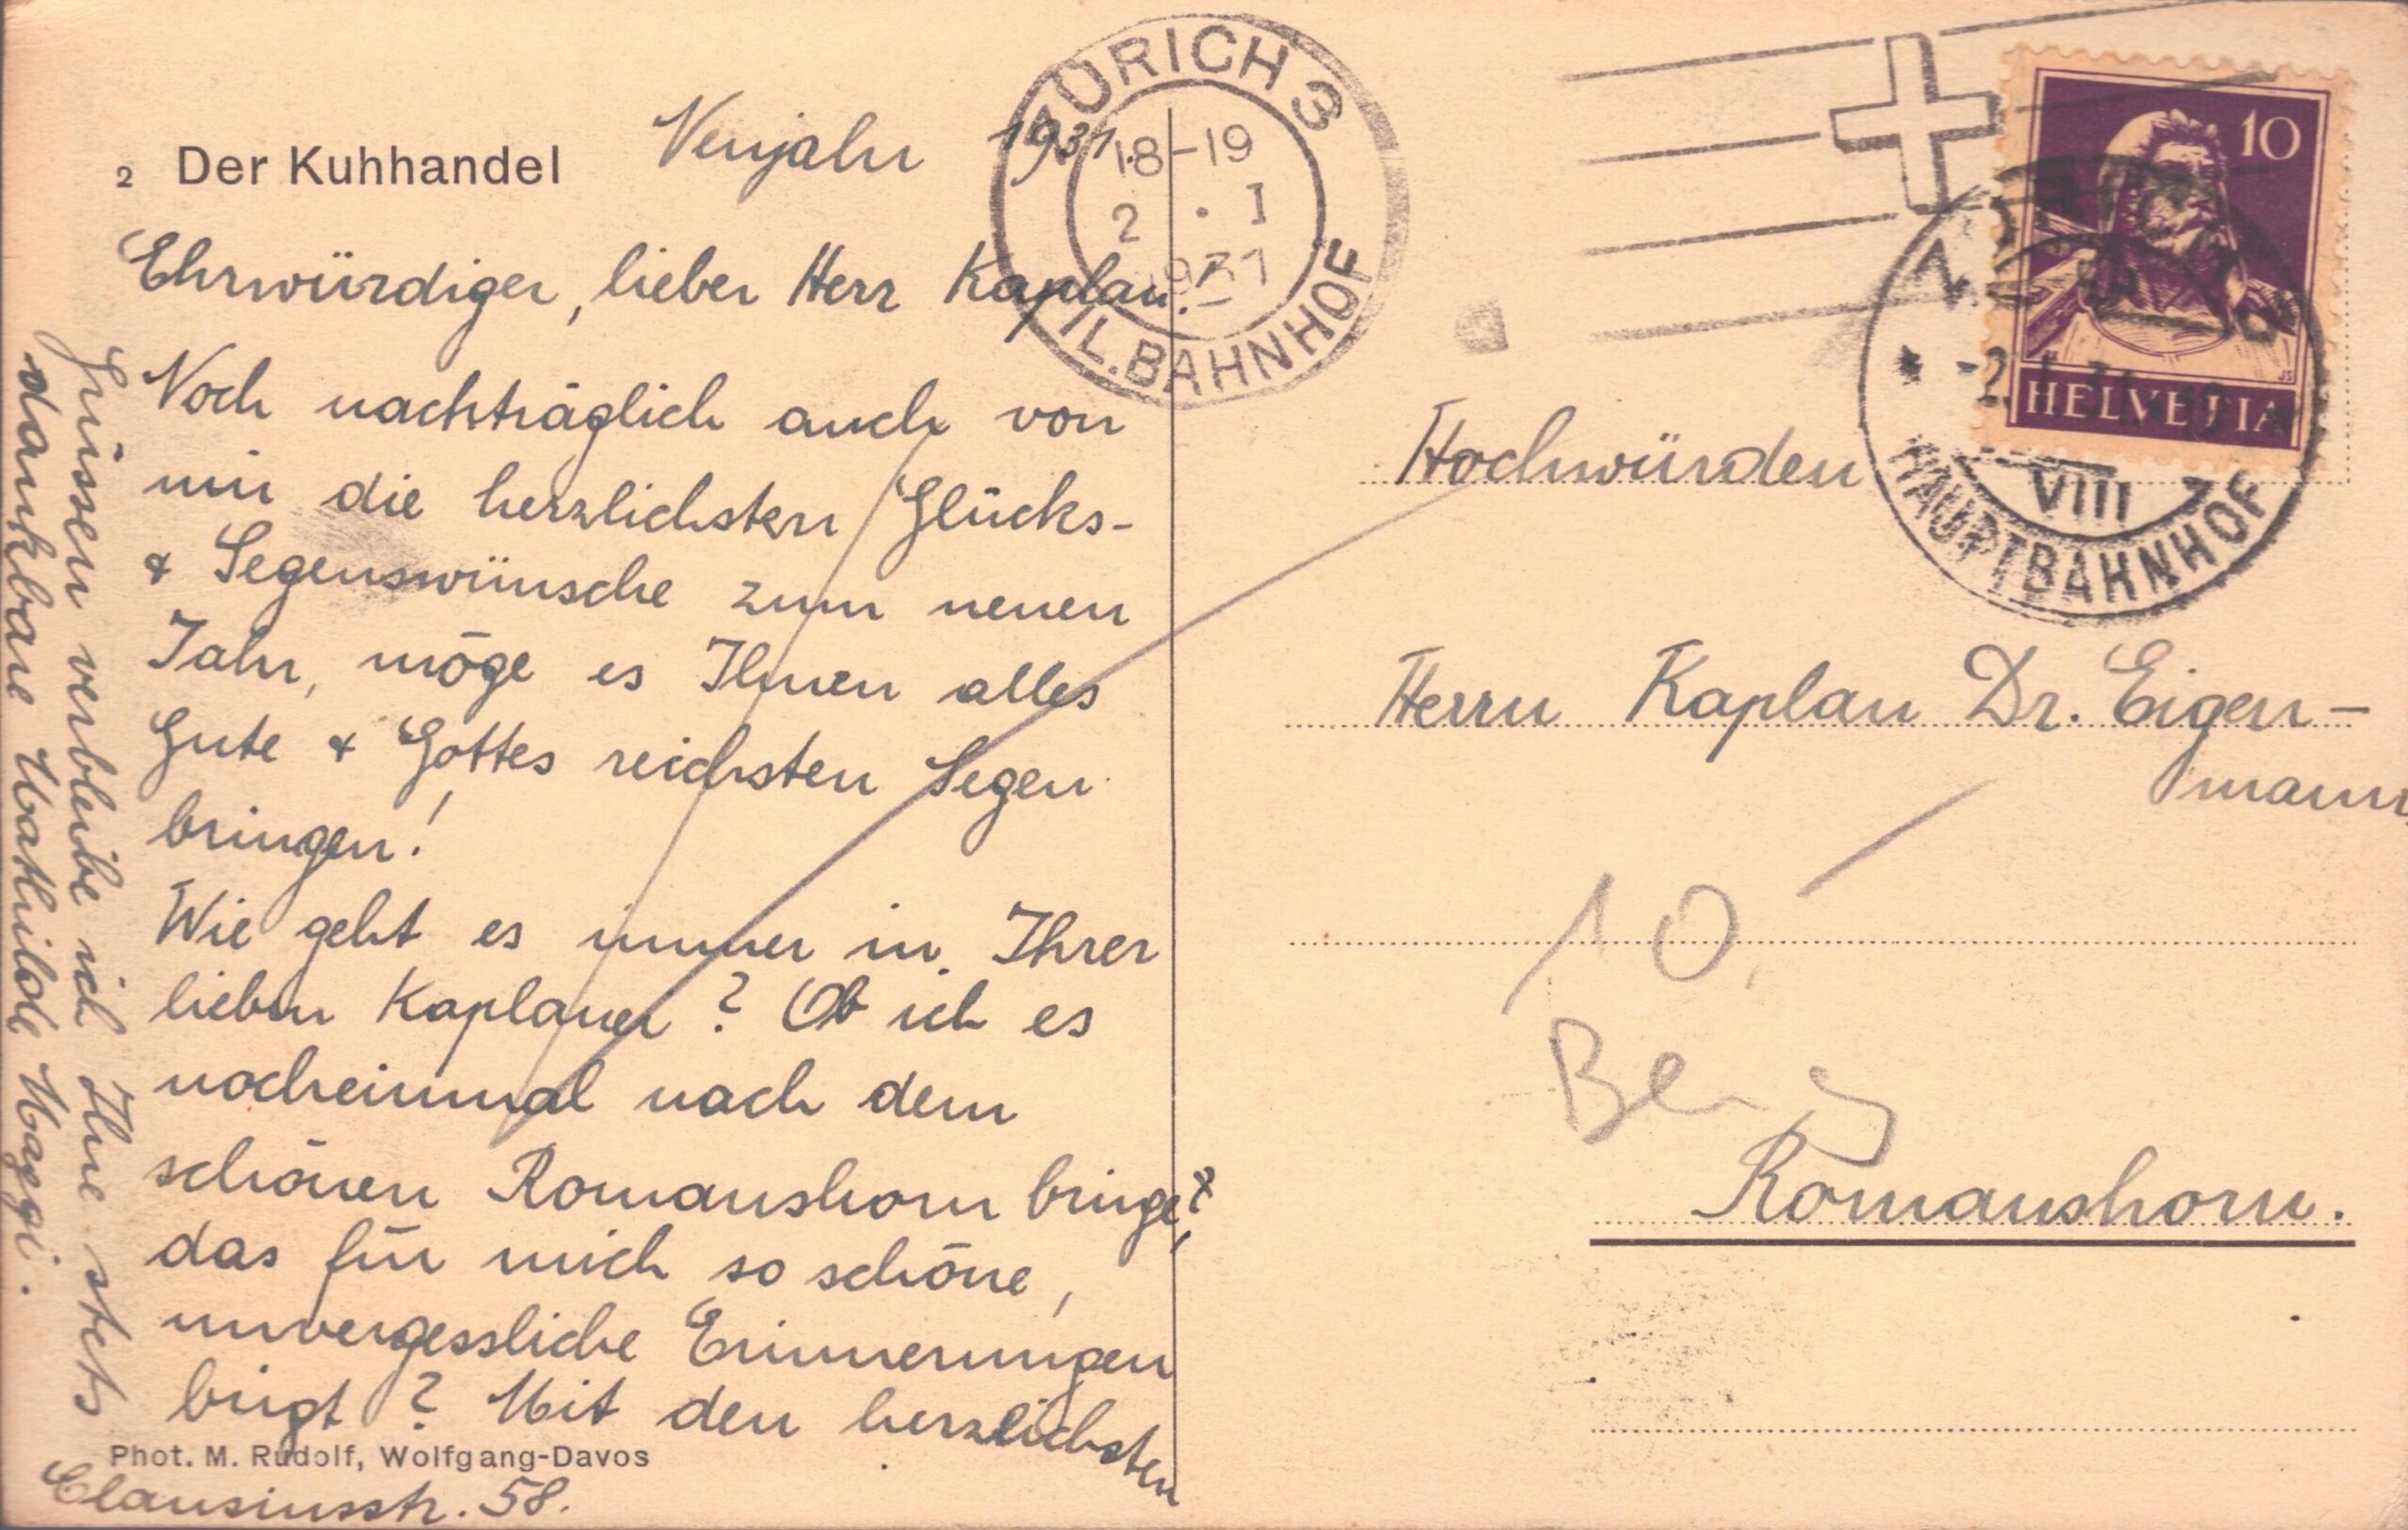 2 Der Kuhhandel
Neujahr 1931.
Ehrwürdiger, lieber Herr Kaplan!
Noch nachträglich auch von
mir die herzlichsten Glücks-
& Segenswünsche zum neuen
Jahr, möge es Ihnen alles
Gute & Gottes reichsten Segen
bringen!
Wie geht es immer in Ihrer
lieben Kaplanei? Ob ich es
nocheinmal nach dem
schönen Romanshorn bringe,
das für mich so schöne,
unvergessliche Erinnerungen
birgt? Mit den herzlichsten
Grüssen verbleibe ich Ihre stets
dankbare Mathilde Maggi.
Phot. M. Rudolf, Wolfgang-Davos
Clausiusstr. 58.
ZÜRICH 3
18-19
2 . I
1931
FIL. BAHNHOF
10
HELVETIA
-2. I. 31
VIII
HAUPTBAHNHOF
Hochwürden
Herrn Kaplan Dr. Eigen-
mann
10.-
Romanshorn.